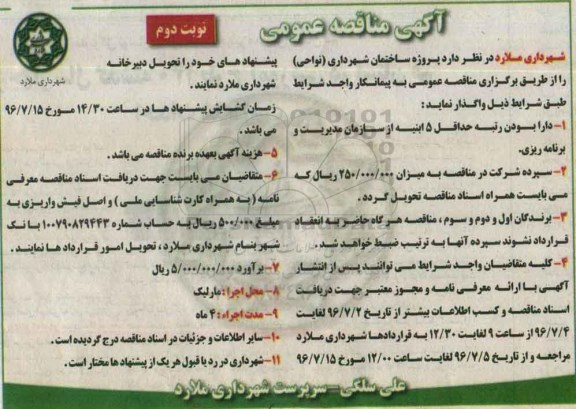 آگهی مناقصه عمومی
نوبت دوم
شهرداری ملارد
شهرداری ملارد در نظر دارد پروژه ساختمان شهرداری (نواحی)
را از طریق برگزاری مناقصه عمومی به پیمانکار واجد شرایط
طبق شرایط ذیل واگذار نماید:
۱- دارا بودن رتبه حداقل ۵ ابنیه از سازمان مدیریت و
برنامه ریزی.
۲- سپرده شرکت در مناقصه به میزان ۲۵۰/۰۰۰/۰۰۰ ریال که
می بایست همراه اسناد مناقصه تحویل گرده.
۳- برندگان اول و دوم و سوم، مناقصه هر گاه حاضر به انعقاد
قرارداد نشوند سپرده آنها به ترتیب ضبط خواهد شد.
۴- کلیه متقاضیان واجد شرایط می توانند پس از انتشار
آگهی با ارائه معرفی نامه و مجوز معتبر جهت دریافت
اسناد مناقصه و کسب اطلاعات بیشتر از تاریخ ۹۶/۷/۲ لغایت
۹۶/۷/۴ از ساعت ۹ لغایت ۱۲/۳۰ به قراردادها شهرداری ملارد
مراجعه و از تاریخ ۹۶/۷/۵ لغایت ساعت ۱۲/۰۰ مورخ ۹۶/۷/۱۵
پیشنهاد های خود را تحویل دبیرخانه
شهرداری ملارد نمایند.
زمان گشایش پیشنهاد ها در ساعت ۱۴/۳۰ مورخ ۹۶/۷/۱۵
می باشد.
۵- هزینه آگهی بعهده برنده مناقصه می باشد.
۶- متقاضیان می بایست جهت دریافت اسناد مناقصه معرفی
نامه (به همراه کارت شناسایی ملی) و اصل فیش واریزی به
مبلغ ۵۰۰/۰۰۰ ریال به حساب شماره ۱۰۰۷۹۰۸۲۹۴۴۳ بانک
شهر بنام شهرداری ملارد، تحویل امور قرارداد ها نمایند.
۷- برآورد ۵/۰۰۰/۰۰۰/۰۰۰ ریال
۸- محل اجرا: مارلیک
۹- مدت اجراء: ۴ ماه
۱۰- سایر اطلاعات و جزئیات در اسناد مناقصه درج گردیده است.
۱۱- شهرداری در رد یا قبول هر یک از پیشنهاد ها مختار است.
علی سلکی - سرپرست شهرداری ملارد